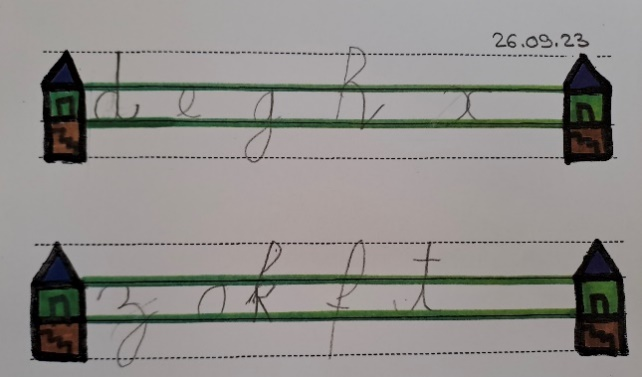 26.09.23
d e g h x
z o k f t